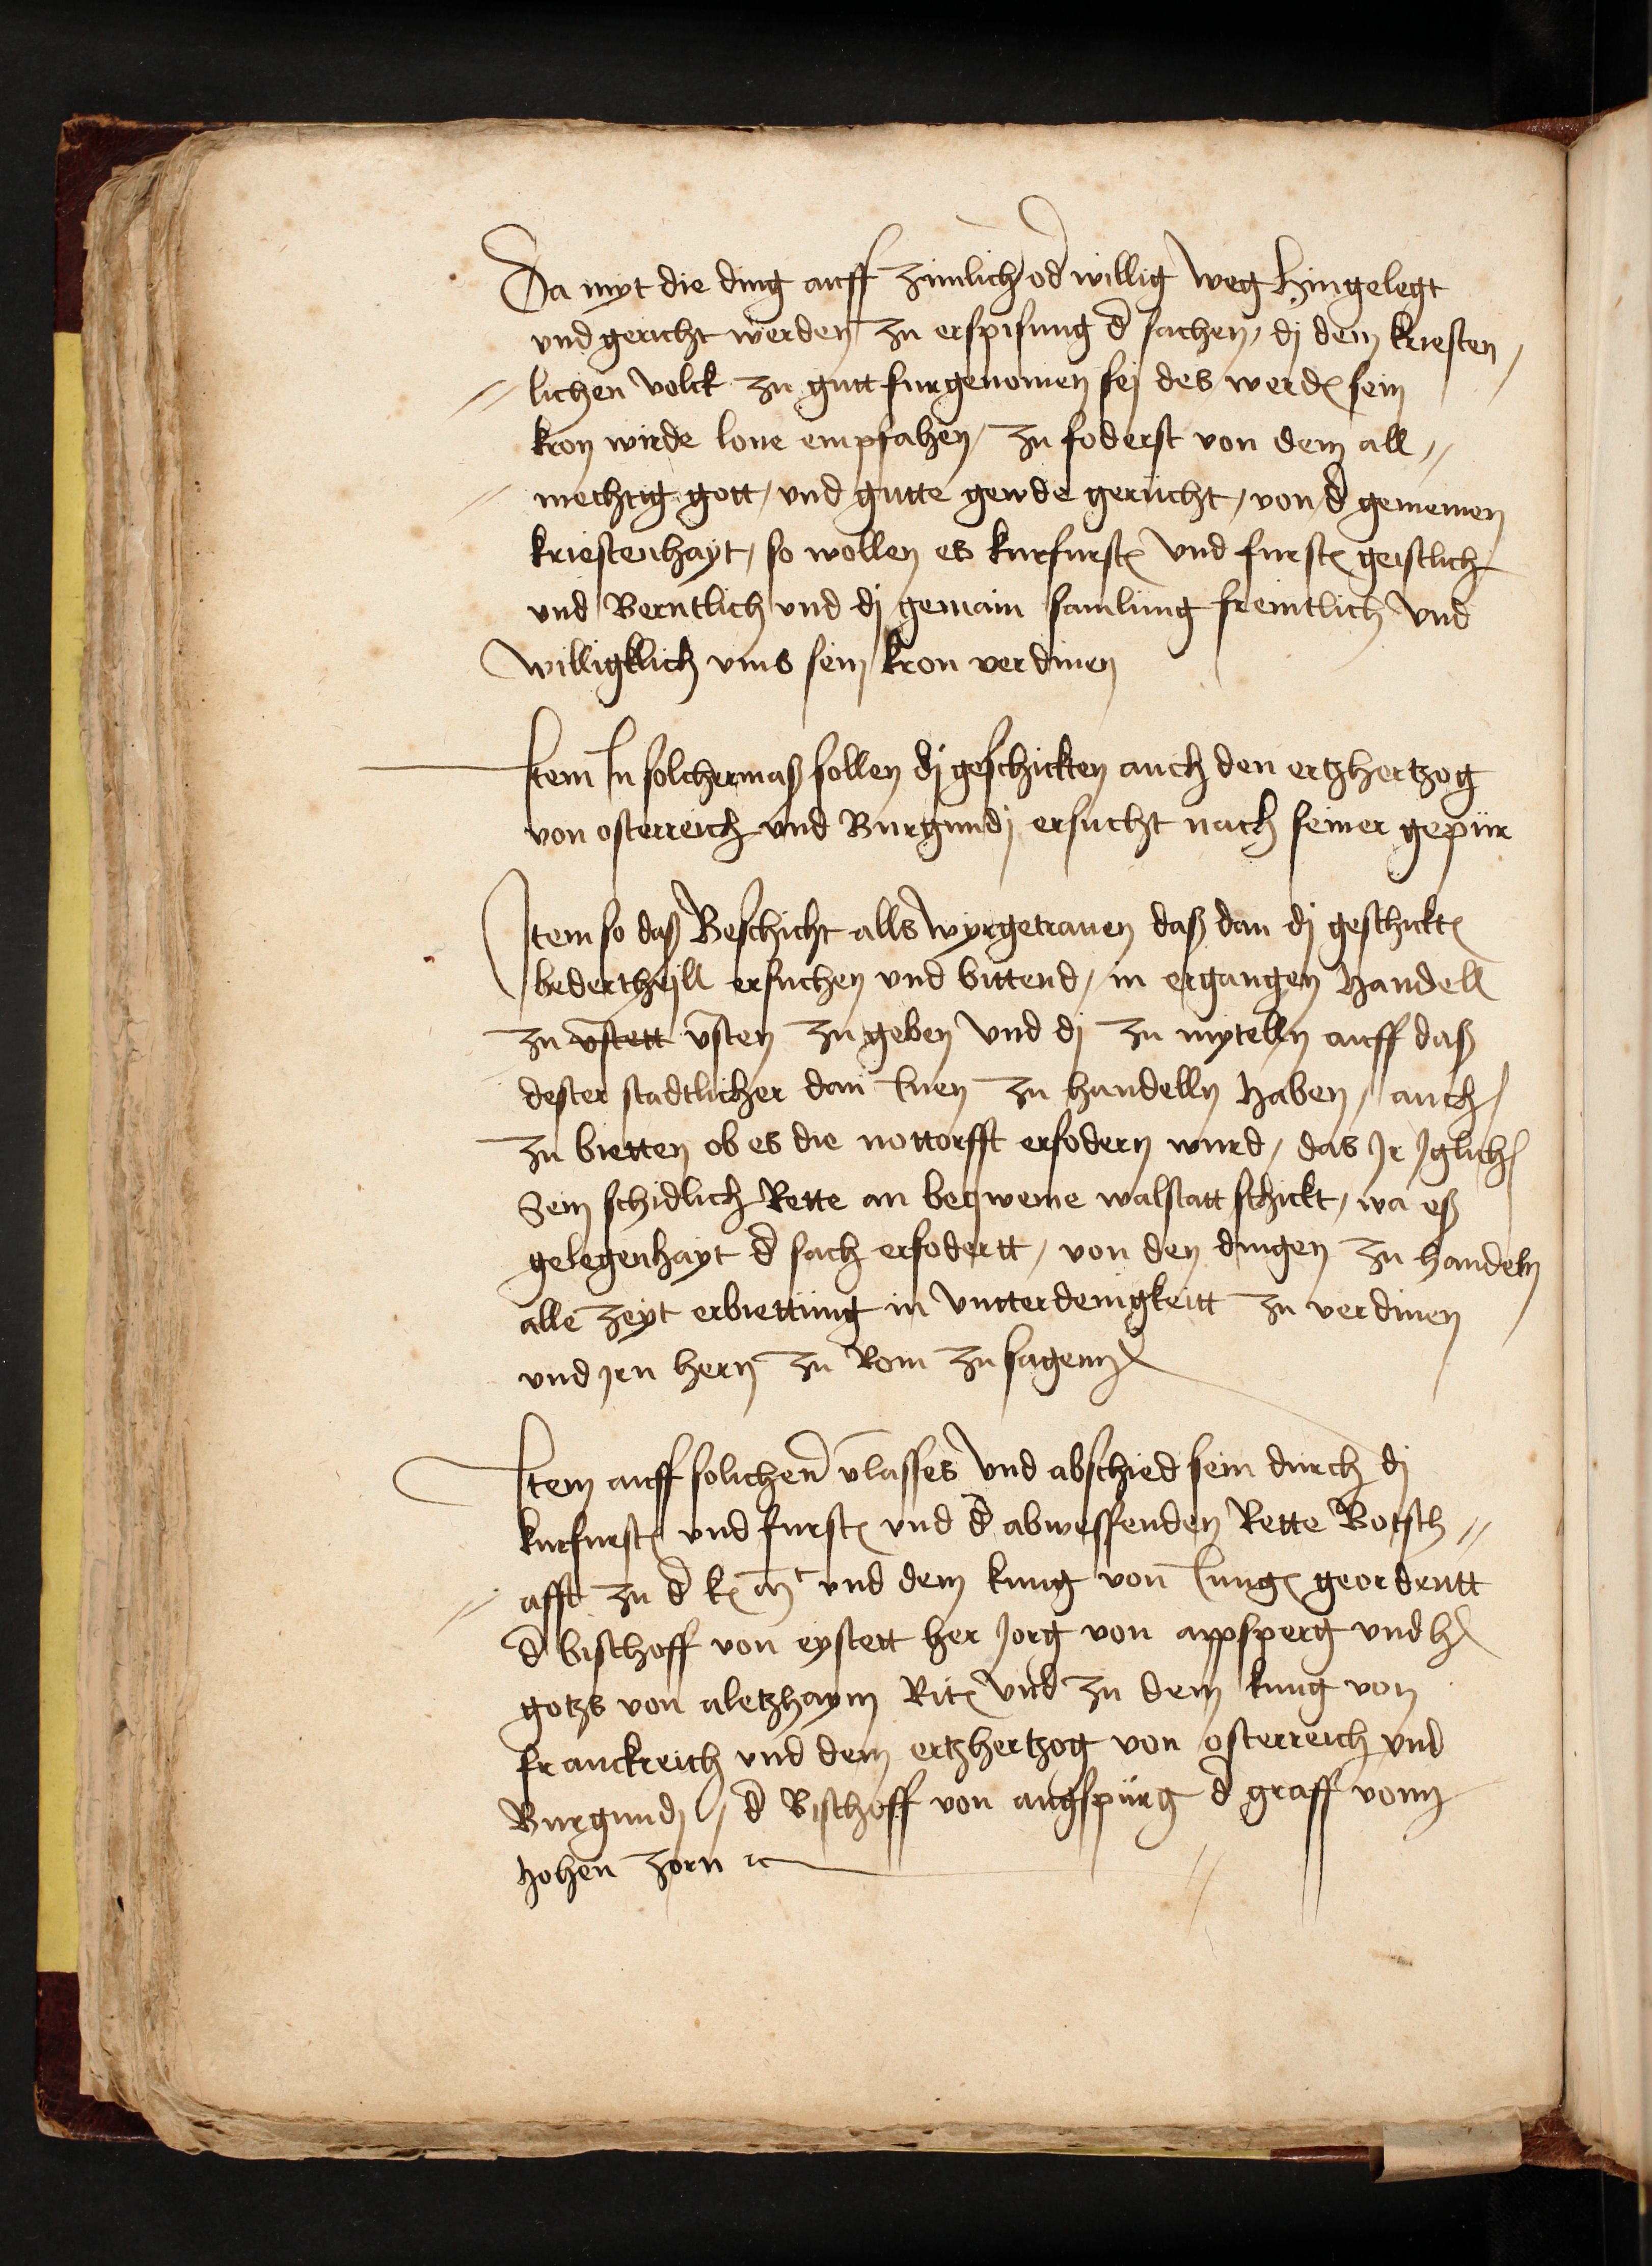 Da myt die ding auff zimlich od willig weg hingelegt
vnd gericht werden zu erspisung d sachen, dj dem kriesten
lichen volck zu gutt furgenomen sej des werd sein
kron wirde lone empfahen, zu foderst von dem all
mechtig gott, vnd gutte gerücht, von d gemeinen
kriestenhayt, so wollen es kurfurst vnd furst geistlich
vnd Werntlich vnd dj gemain samlung freintlich vnd
williglich vms sein kron verdinen
Item In solchermaß sollen dj geschickten auch den ertzhertzog
von osterreich vnd Burgundj ersucht nach seiner gepür
Item so daß Beschicht alls wyr getrauen daß dan dj geschickt
bedertheill ersuchen vnd bittend, in ergangen handell
zu vstett vsten zu geben vnd dj zu mytelln auff daß
dester stadtlicher dan Inen zu handelln haben, auch
zu bietten ob es die nottorfft erfodern wurd, das Ir Iglich
Sein schidlich Rette an beqweme walstatt schickt, wa eß
gelegenhayt d sach erfodertt, von den dingen zu handeln
alle zeyt erbiettung in vntterdenigkeitt zu verdinen
vnd Irn hern zu Rom zu sagenn
Item auff solichen vlasses vnd abschied sein durch dj
kurfurst vnd furst vnd d abwessenden Rette Botsch
afft zu d k mt vnd dem kung von Vng geordentt
d bischoff von eystett her Jorg von appsperg vnd h
gotzs von aletzhaym Rit vnd zu dem kung von
franckreich vnd dem ertzhertzog von osterreich vnd
Burgundj, d Bischoff von augspürg d graff vonn
hohen zorn ꝛc